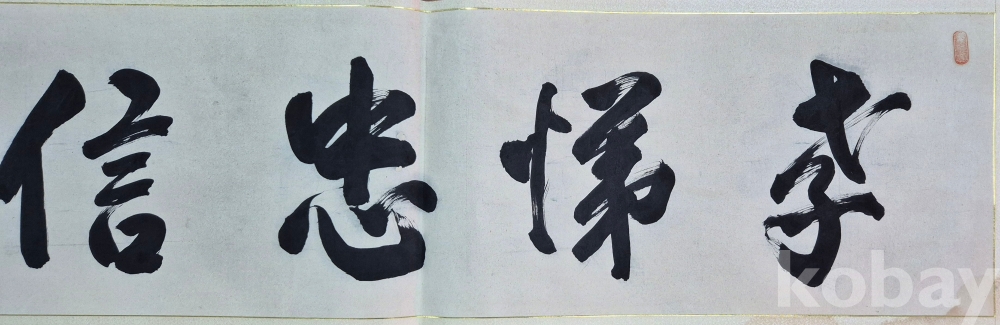 孝悌忠信
kobay